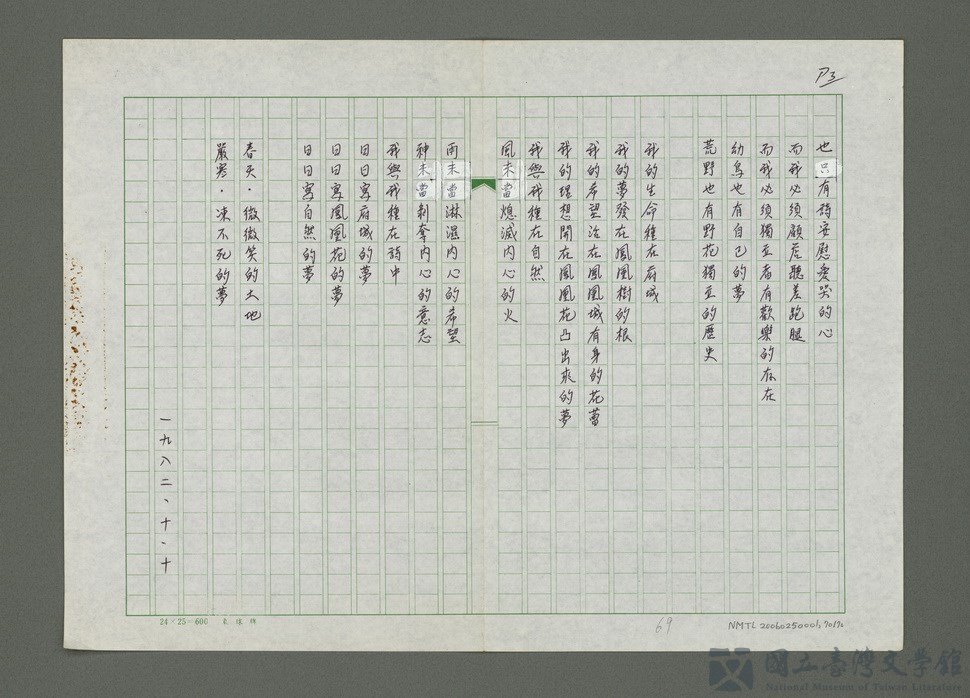 P3
也只有詩安慰愛哭的心
而我必須顧店聽差跑腿
而我必須獨立者有歡樂的存在
幼鳥也有自己的夢
荒野也有野花獨立的歷史
我的生命種在府城
我的夢發在鳳凰樹的根
我的希望沿在鳳凰城有身的花蕾
我的理想開在鳳凰花凸出來的夢
我與我種在自然
風未當熄滅內心的火
雨未當淋濕內心的希望
神未當剝奪內心的意志
我與我種在詩中
日日寫府城的夢
日日寫鳳凰花的夢
日日寫自然的夢
春天．微微笑的土地
嚴寒．凍不死的夢
一九八二、十、十
24×25=600
69
NMTL20060250001,70170
國立臺灣文學館
National Museum of Taiwan Literature